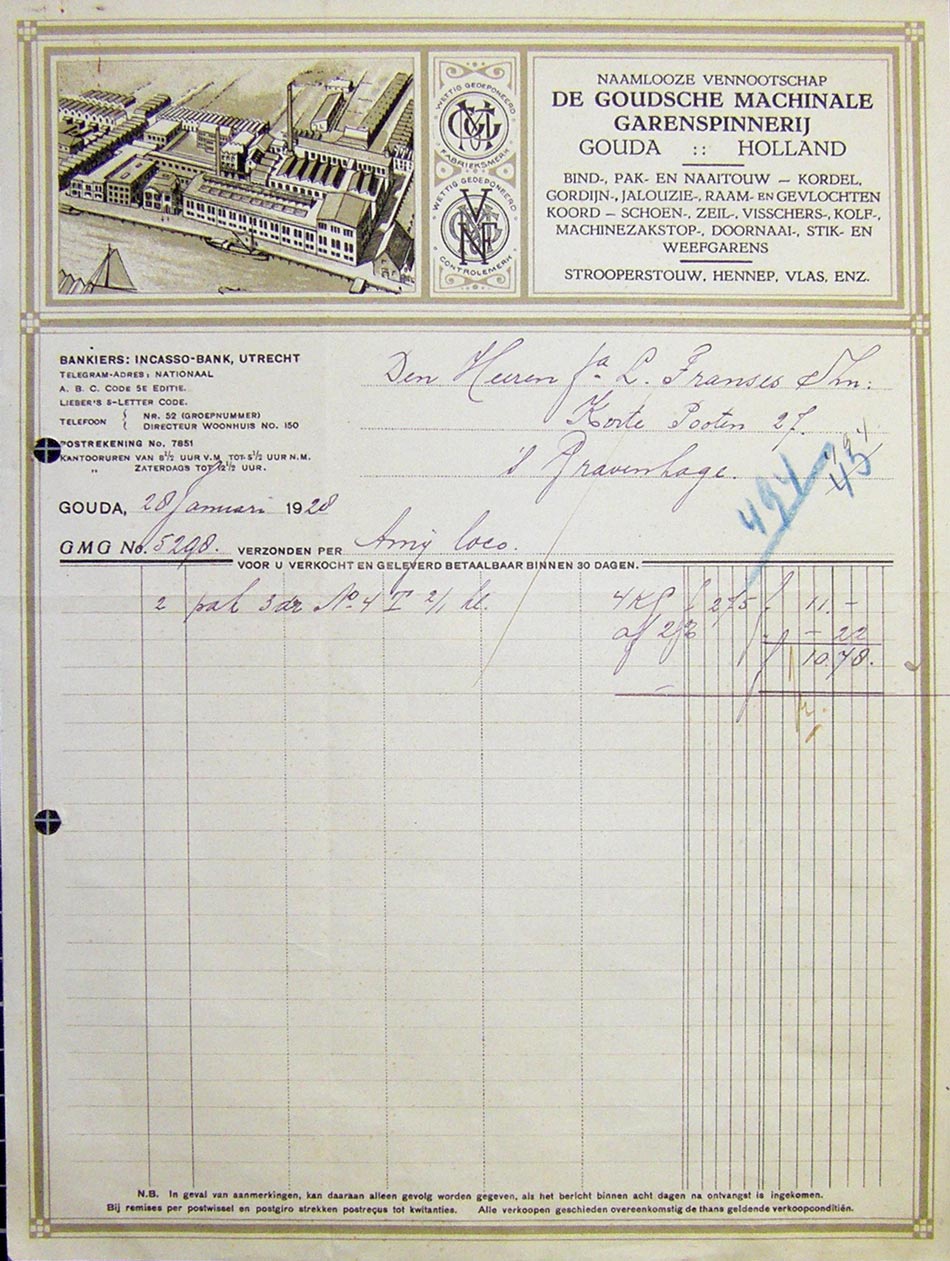 WETTIG GEDEPONEERD
FABRIEKSMERK
WETTIG GEDEPONEERD
CONTROLEMERK
NAAMLOOZE VENNOOTSCHAP
DE GOUDSCHE MACHINALE
GARENSPINNERIJ
GOUDA :: HOLLAND
BIND-, PAK- EN NAAITOUW — KORDEL,
GORDIJN-, JALOUZIE-, RAAM- EN GEVLOCHTEN
KOORD — SCHOEN-, ZEIL-, VISSCHERS-, KOLF-,
MACHINEZAKSTOP-, DOORNAAI-, STIK- EN
WEEFGARENS
STROOPERSTOUW, HENNEP, VLAS, ENZ.
BANKIERS: INCASSO-BANK, UTRECHT
TELEGRAM-ADRES: NATIONAAL
A. B. C. CODE 5E EDITIE.
LIEBER'S 5-LETTER CODE.
TELEFOON { NR. 52 (GROEPNUMMER)
DIRECTEUR WOONHUIS NO. 150
POSTREKENING No. 7851
KANTOORUREN VAN 8½ UUR V.M. TOT 5½ UUR N.M.
" ZATERDAGS TOT 12½ UUR.
Den Heeren fa L. Franses Jm:
Korte Pooten 27.
's Gravenhage.
494
GOUDA, 28 Januari 1928
GMG No. 5298. VERZONDEN PER Amij loco.
VOOR U VERKOCHT EN GELEVERD BETAALBAAR BINNEN 30 DAGEN.
2 pak 3 dr No. 4 I 2/1 kl. 4 KG f 275 f 11.-
af 2% " - 22
f 10.78.
N.B. In geval van aanmerkingen, kan daaraan alleen gevolg worden gegeven, als het bericht binnen acht dagen na ontvangst is ingekomen.
Bij remises per postwissel en postgiro strekken postreçus tot kwitanties. Alle verkoopen geschieden overeenkomstig de thans geldende verkoopconditiën.